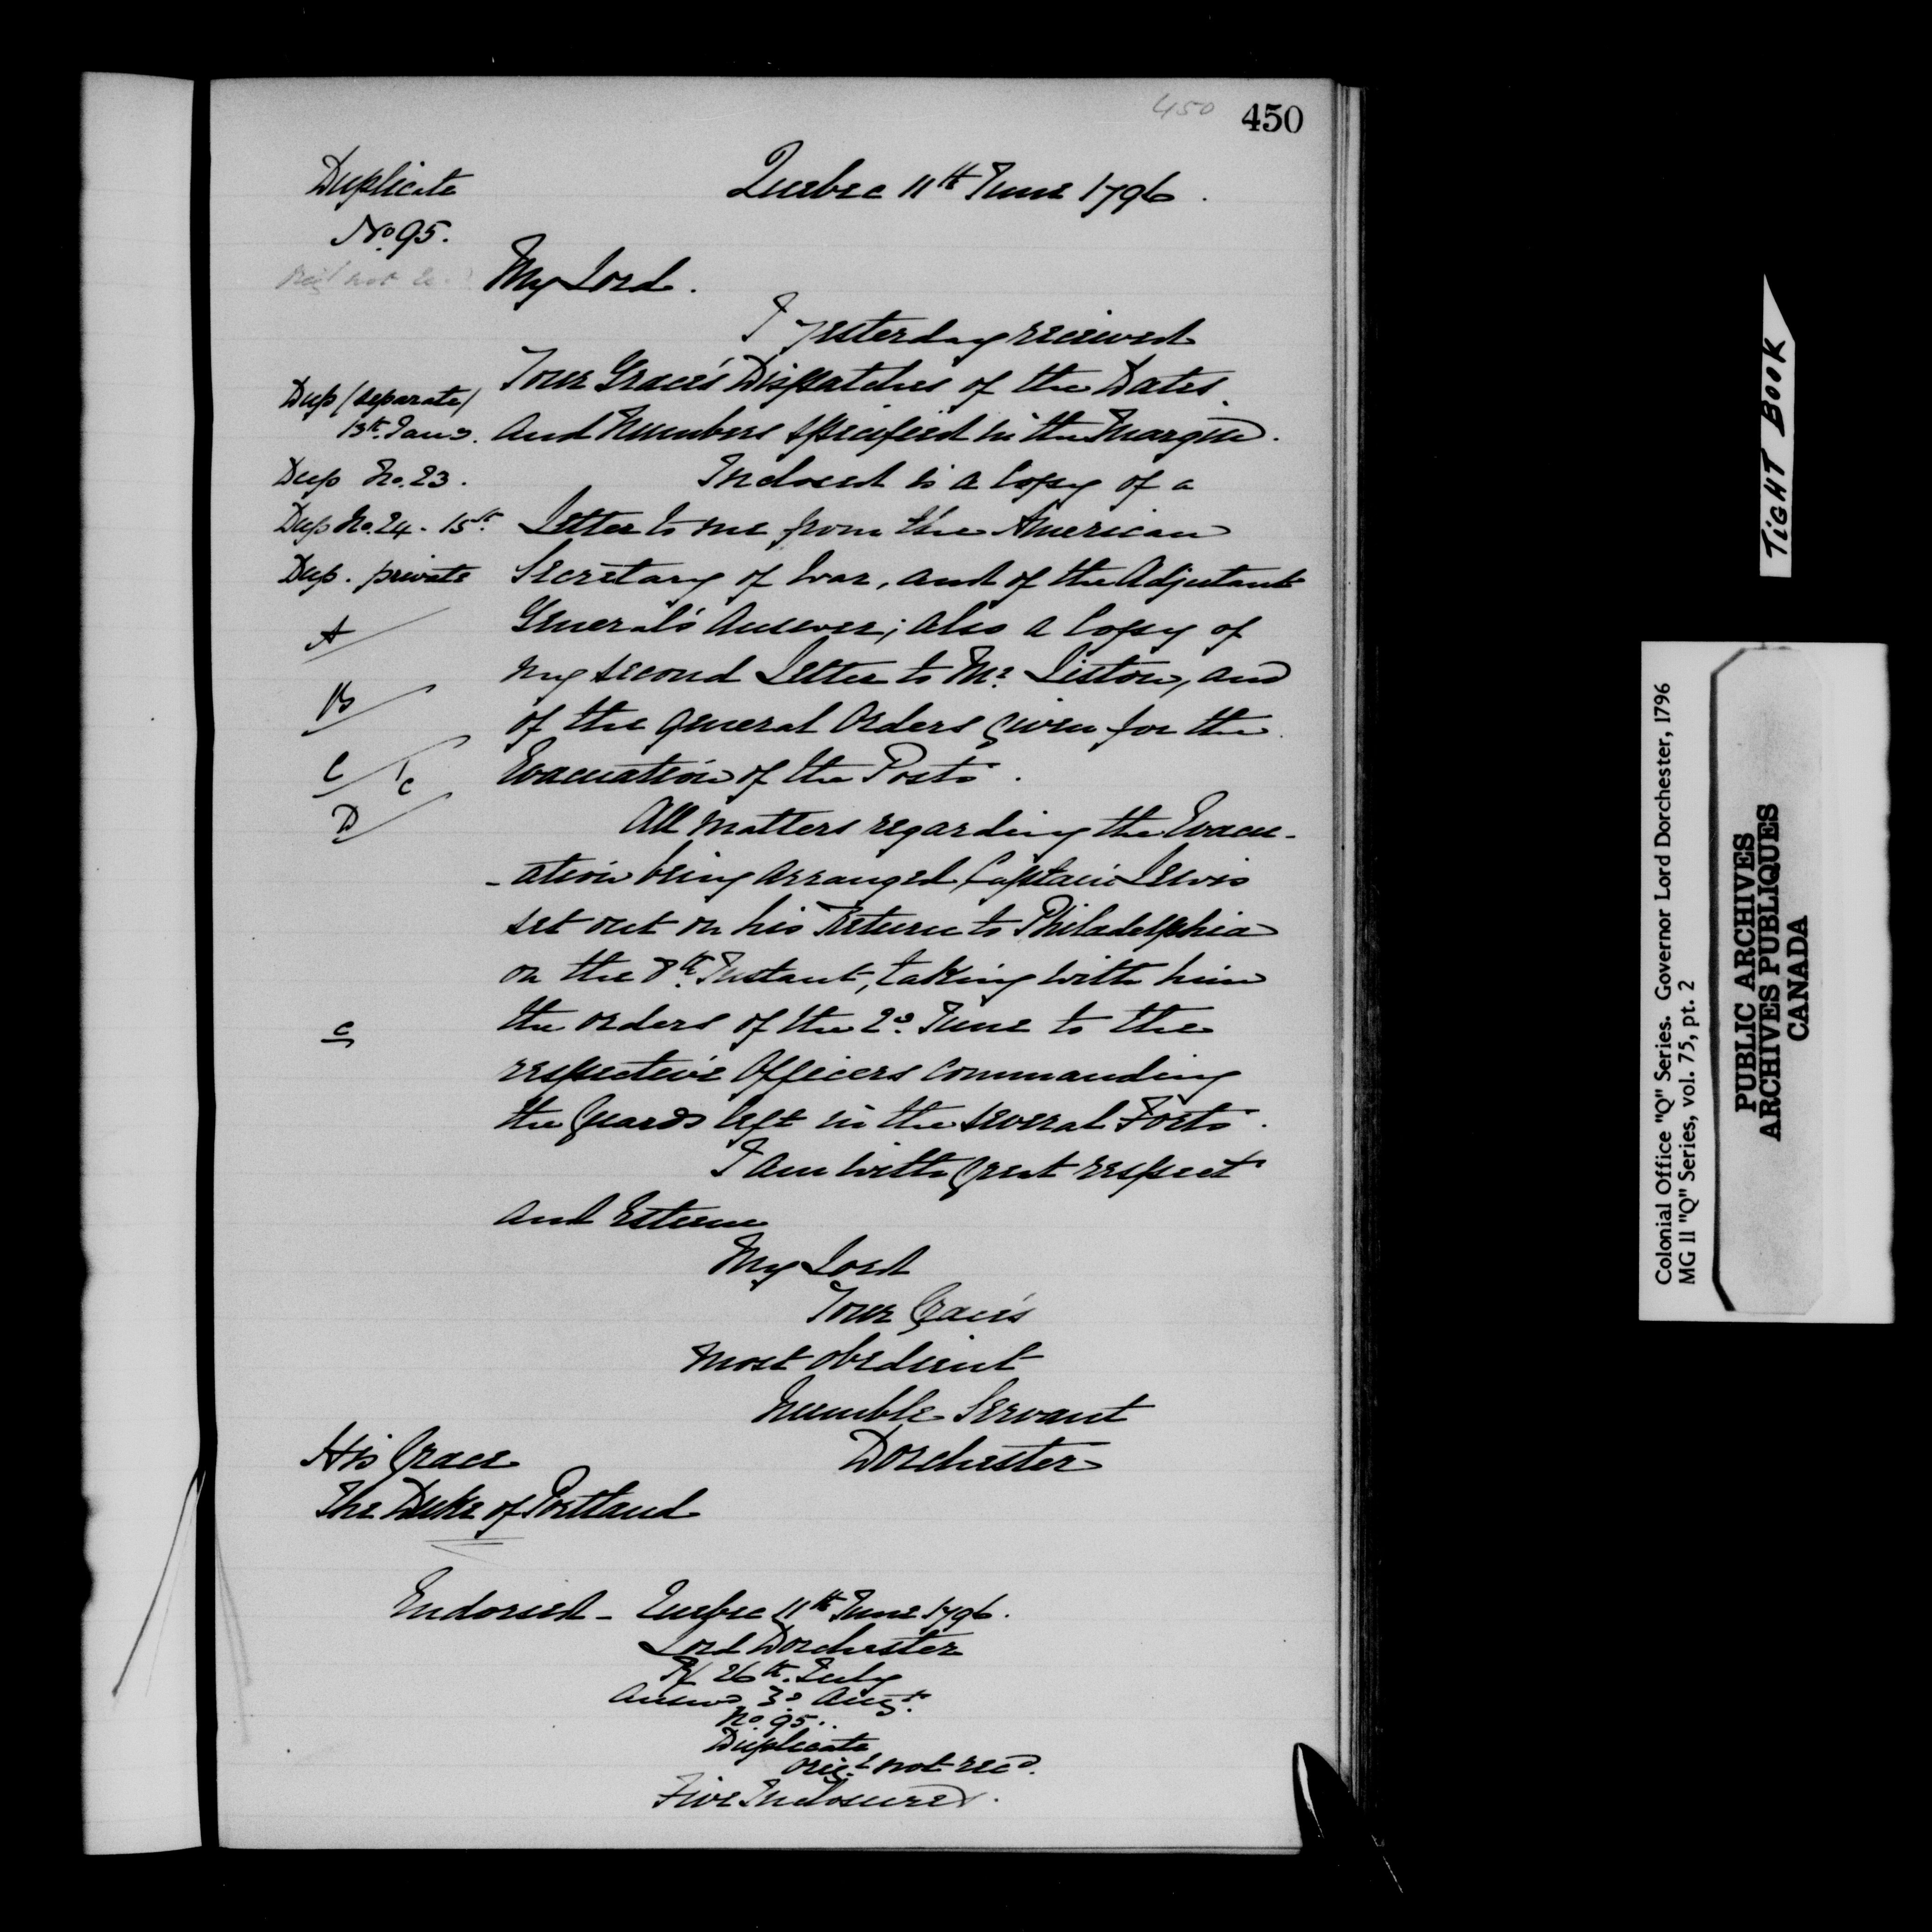 450 450
Duplicate
No. 95.
Quebec 11th June 1796.
My Lord.
I yesterday received
Your Grace's Dispatches of the Dates
and Numbers specified in the Margin.
Dup (separate)
13th Jany.
Dup No. 23.
Dup No. 24 - 15th
Dup. private
Inclosed is a Copy of a
Letter to me from the American
Secretary of War, and of the Adjutant
General's Answer; also a Copy of
my second Letter to Mr. Liston, and
of the general Orders given for the
Evacuation of the Posts.
A
B
C / c
D
All matters regarding the Evacu-
-ation being arranged, Captain Lewis
set out on his Return to Philadelphia
on the 8th Instant, taking with him
the orders of the 2d. June to the
respective Officers commanding
the Guards left in the several Forts.
c
I am with great respect
and Esteem
My Lord
Your Grace's
most obedient
humble Servant
Dorchester
His Grace
The Duke of Portland
Endorsed - Quebec 11th June 1796.
Lord Dorchester
R/ 26th. July
Answd. 3d Augt.
No. 95.
Duplicate
orig.l not recd.
Five Inclosures.
TIGHT BOOK
Colonial Office "Q" Series. Governor Lord Dorchester, 1796
MG 11 "Q" Series, vol. 75, pt. 2
PUBLIC ARCHIVES
ARCHIVES PUBLIQUES
CANADA